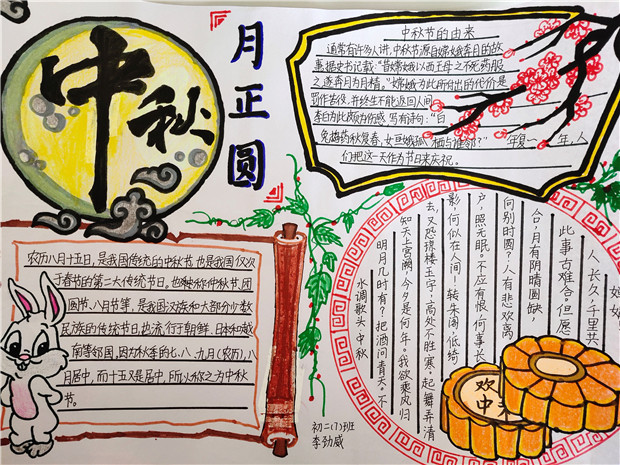 中秋
月正圆
中秋节的由来
通常有许多人讲,中秋节源自嫦娥奔月的故
事据史书记载:"昔嫦娥以西王母之不死药服
之遂奔月为月精。"嫦娥为此所付出的代价是
罚作苦役,并终生不能返回人间
李白为此颇为伤感,另有诗句:"白
兔捣药秋复春,女亘娥孤栖与谁邻?"年复一年,人
们把这一天作为节日来庆祝。
农历八月十五日,是我国传统的中秋节,也是我国仅次
于春节的第二大传统节日,也被称中秋节,团
圆节、八月节等,是我国汉族和大部分少数
民族的传统节日,也流行于朝鲜、日本和越
南等邻国,因为秋季的七、八、九月(农历),八
月居中,而十五又是居中,所以称之为中秋
节。
水调歌头·中秋
明月几时有?把酒问青天。不
知天上宫阙,今夕是何年,我欲乘风归
去,又恐琼楼玉宇,高处不胜寒,起舞弄清
影,何似在人间!转朱阁,低绮
户,照无眠。不应有恨,何事长
向别时圆?人有悲欢离
合,月有阴晴圆缺,
此事古难合。但愿
人长久,千里共
欢
中
初二(7)班
李劲威